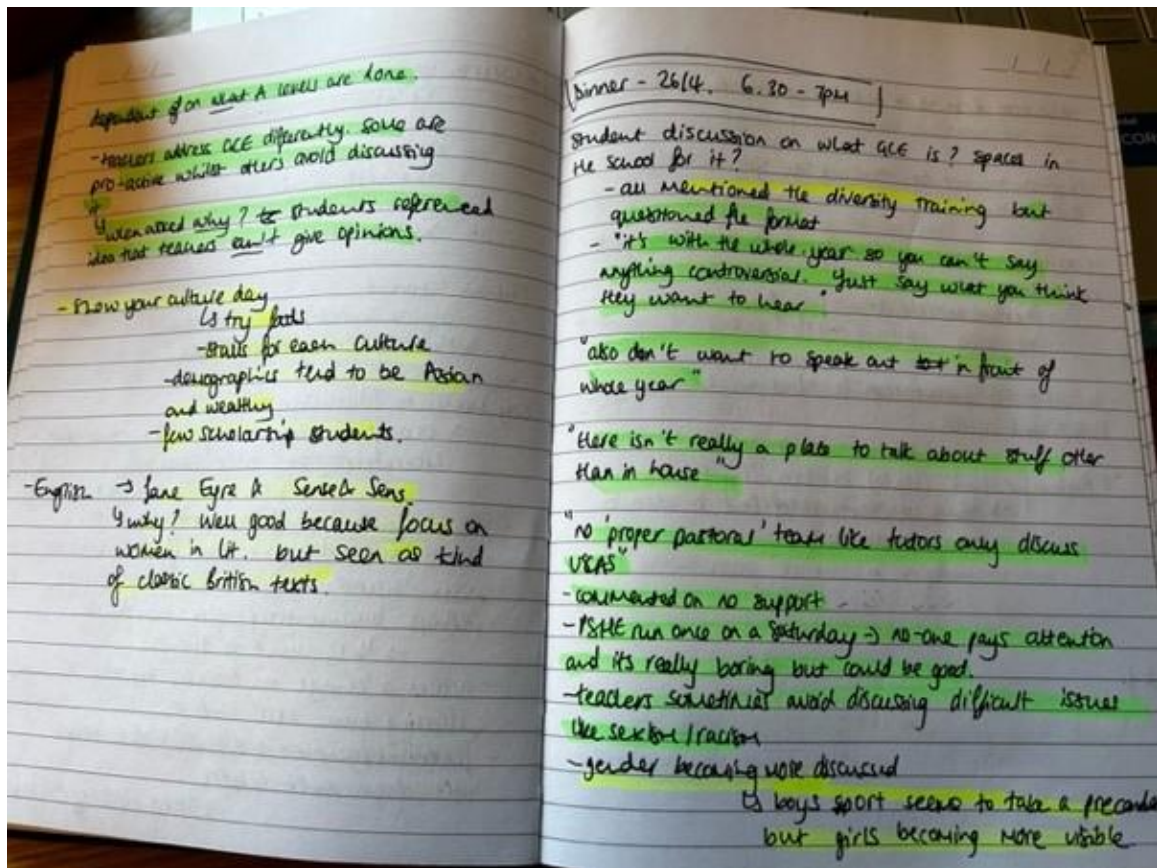 dependent on what A levels are done.
-teachers address GCE differently. Some are
pro-active whilst others avoid discussing
it
↳ when asked why? students referenced
idea that teachers can't give opinions.
- Show your culture day
↳ try foods
-stalls for each culture
-demographics tend to be Asian
and wealthy
-few scholarship students.
-English → Jane Eyre & Sense & Sens.
↳ why? Well good because focus on
women in lit. but seen as kind
of classic British texts.
Dinner - 26/4. 6.30 - 7pm
Student discussion on what GCE is? spaces in
the school for it?
- all mentioned the diversity training but
questioned the format
- "it's with the whole year so you can't say
anything controversial. Just say what you think
they want to hear"
"also don't want to speak out in front of
whole year"
"there isn't really a place to talk about stuff other
than in house"
"no 'proper pastoral' team like tutors only discuss
UCAS"
-commented on no support
-PSHE run once on a Saturday → no-one pays attention
and its really boring but could be good.
-teachers sometimes avoid discussing difficult issues
like sexism/racism
-gender becoming more discussed
↳ boys sport seems to take a precende
but girls becoming more visible.